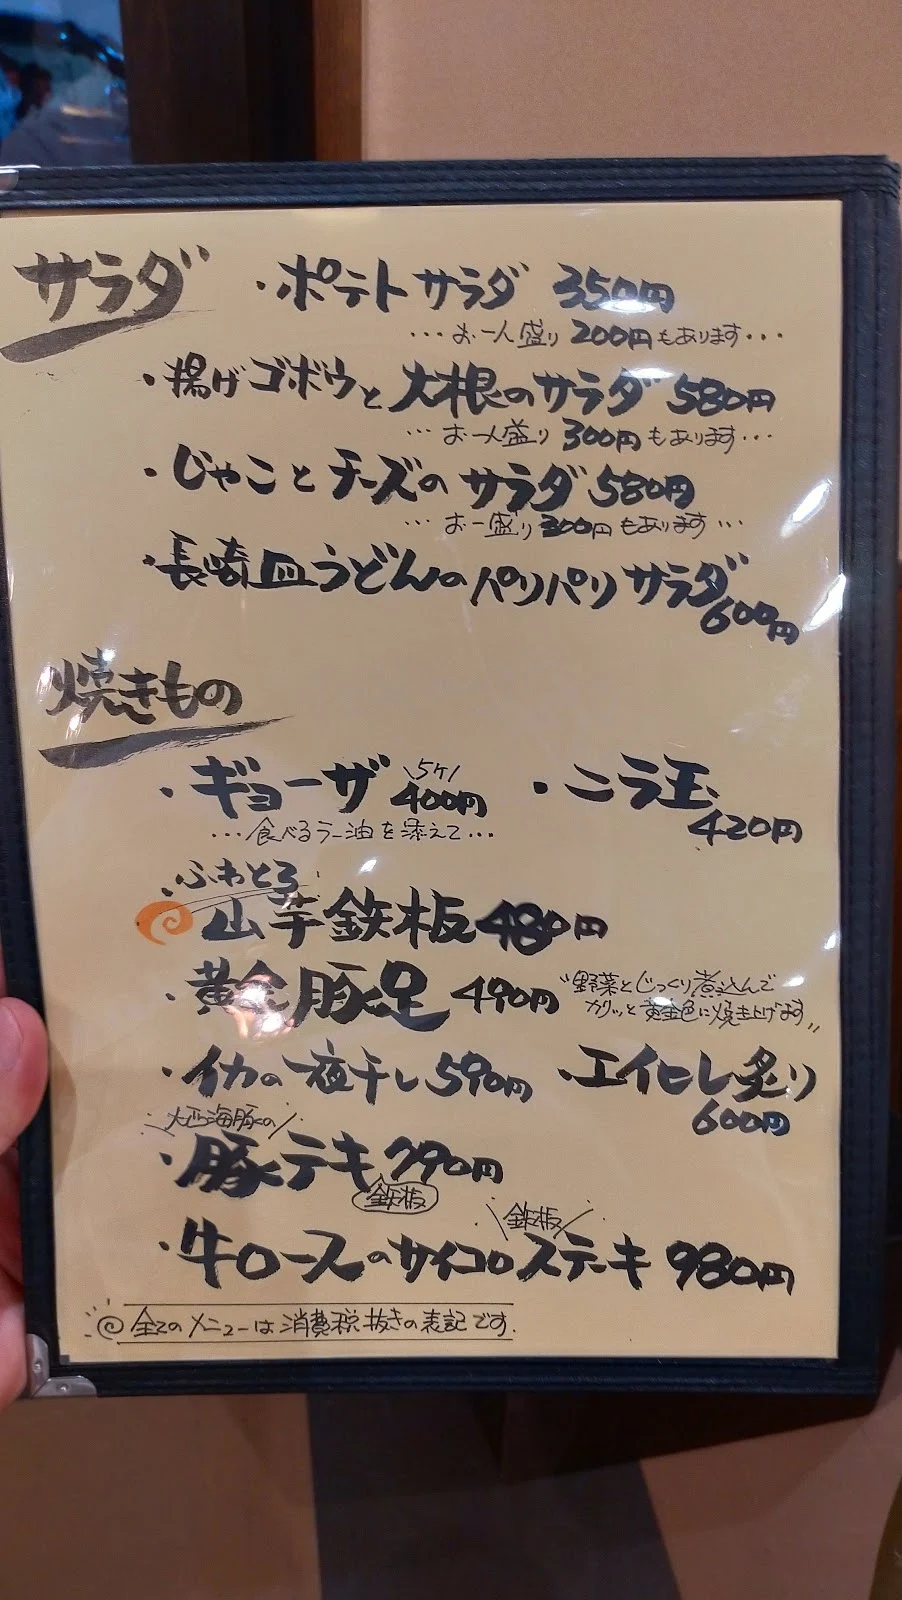 サラダ
・ポテトサラダ 350円
…お一人盛り200円もあります…
・揚げゴボウと大根のサラダ 580円
…お一人盛り300円もあります…
・じゃことチーズのサラダ 580円
…お一盛り300円もあります…
・長崎皿うどんのパリパリサラダ
600円
焼きもの
・ギョーザ \5ケ/ 400円
…食べるラー油を添えて…
・ニラ玉
420円
・ふわとろ
山芋鉄板 480円
・黄金豚足 490円
"野菜とじっくり煮込んで
カリッと黄金色に焼き上げます"
・イカの一夜干し 590円
・エイヒレ炙り
600円
\大西海豚の/
・豚テキ 790円
鉄板
\鉄板/
・牛ロースのサイコロステーキ 980円
全てのメニューは消費税抜きの表記です.